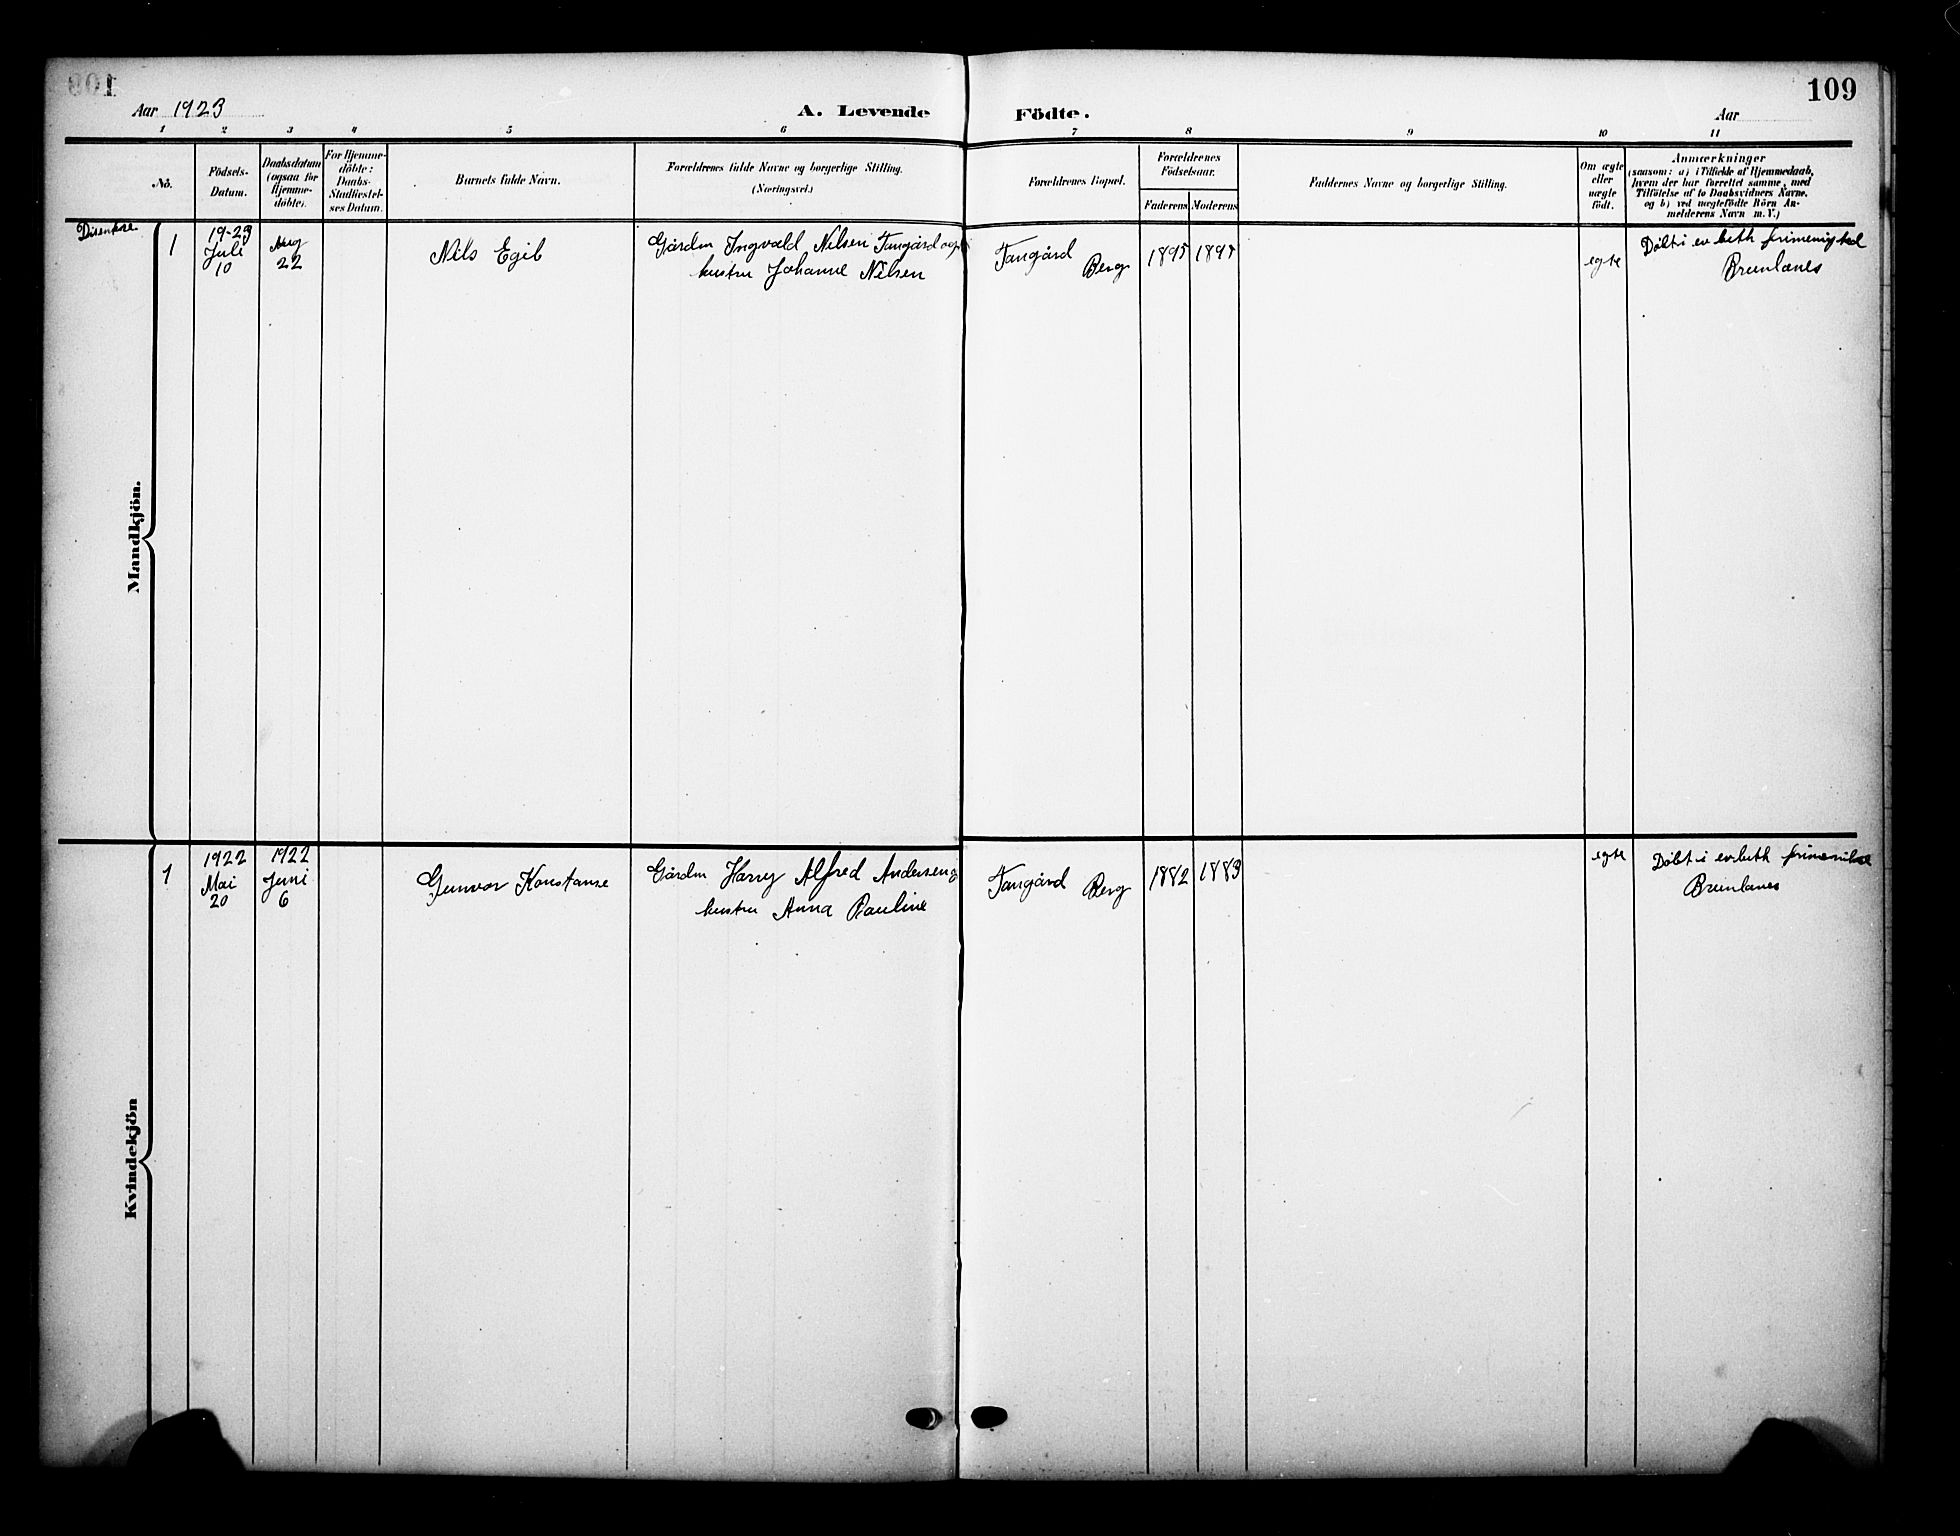 109
Aar 1923
A. Levende Födte.
Aar
1 2 3 4 5 6 7 8 9 10 11
No.
Födsels-
Datum.
Daabsdatum
(ogsaa for
Hjemme-
döbte).
For Hjemme-
döbte:
Daabs-
Stadfæstel-
ses Datum.
Barnets fulde Navn.
Forældrenes fulde Navne og borgerlige Stilling.
(Næringsvei.)
Forældrenes Bopæl.
Forældrenes
Födselsaar.
Faderens Moderens
Faddernes Navne og borgerlige Stilling.
Om ægte
eller
uægte
födt.
Anmærkninger
(saasom: a) i Tilfælde af Hjemmedaab,
hvem der har forrettet samme, med
Tilföielse af to Daabsvidners Navne,
og b) ved uægtefödte Börn An-
melderens Navn m. V.)
Mandkjön.
1
19-23
Juli
10
Aug
22
Nils Egil
Gårdm Ingvald Nilsen Tangård og
hustru Johanne Nilsen
Tangård
Berg
1895
egte
Døbt i ev luth
Brunlanes
Kvindekjön
1
1922
Mai
20
1922
Juni
6
Gunvor Konstanse
Gårdm Harry Alfred Andersen og
hustru Anna Pauline
Tangård Berg
1882 1883
egte
Døbt i ev luth
Brunlanes